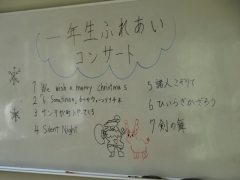 一年生ふれあい
コンサート
1 We wish a merry christmas
2
3 サンタが町にやってくる
4 Silent Night
5 諸人こぞりて
6 ひいらぎかざろう
7 剣の舞